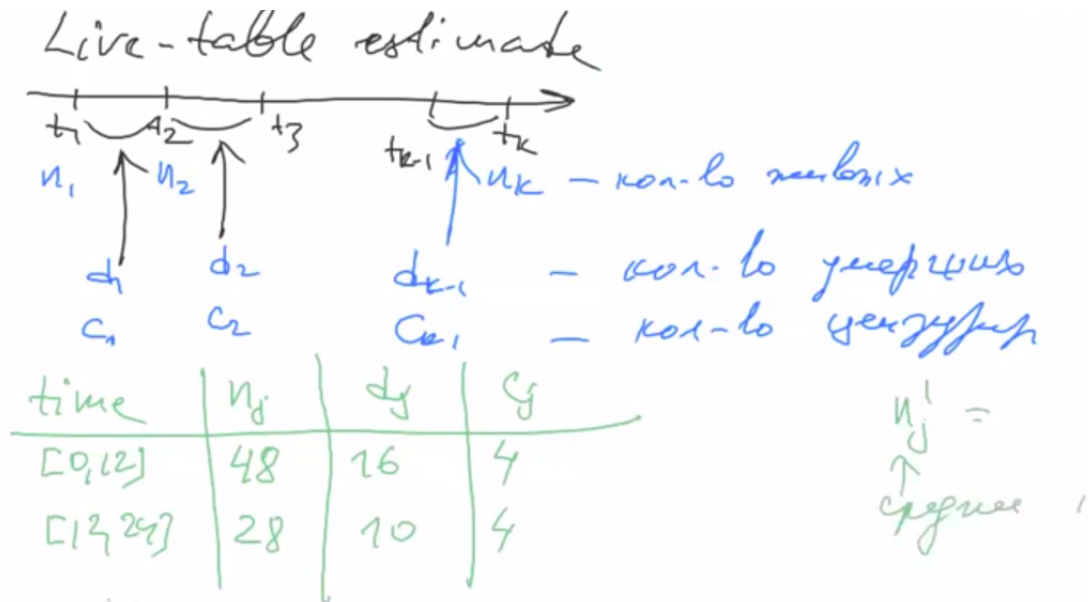 Live-table estimate
t₁ t₂ t₃ tₖ₋₁ tₖ
n₁ n₂ nₖ – кол-во живых
d₁ d₂ dₖ₋₁ – кол-во умерших
c₁ c₂ cₖ₋₁ – кол-во цензурир
time nⱼ dⱼ cⱼ
[0,12] 48 16 4
[12,24] 28 10 4
nⱼ' =
среднее